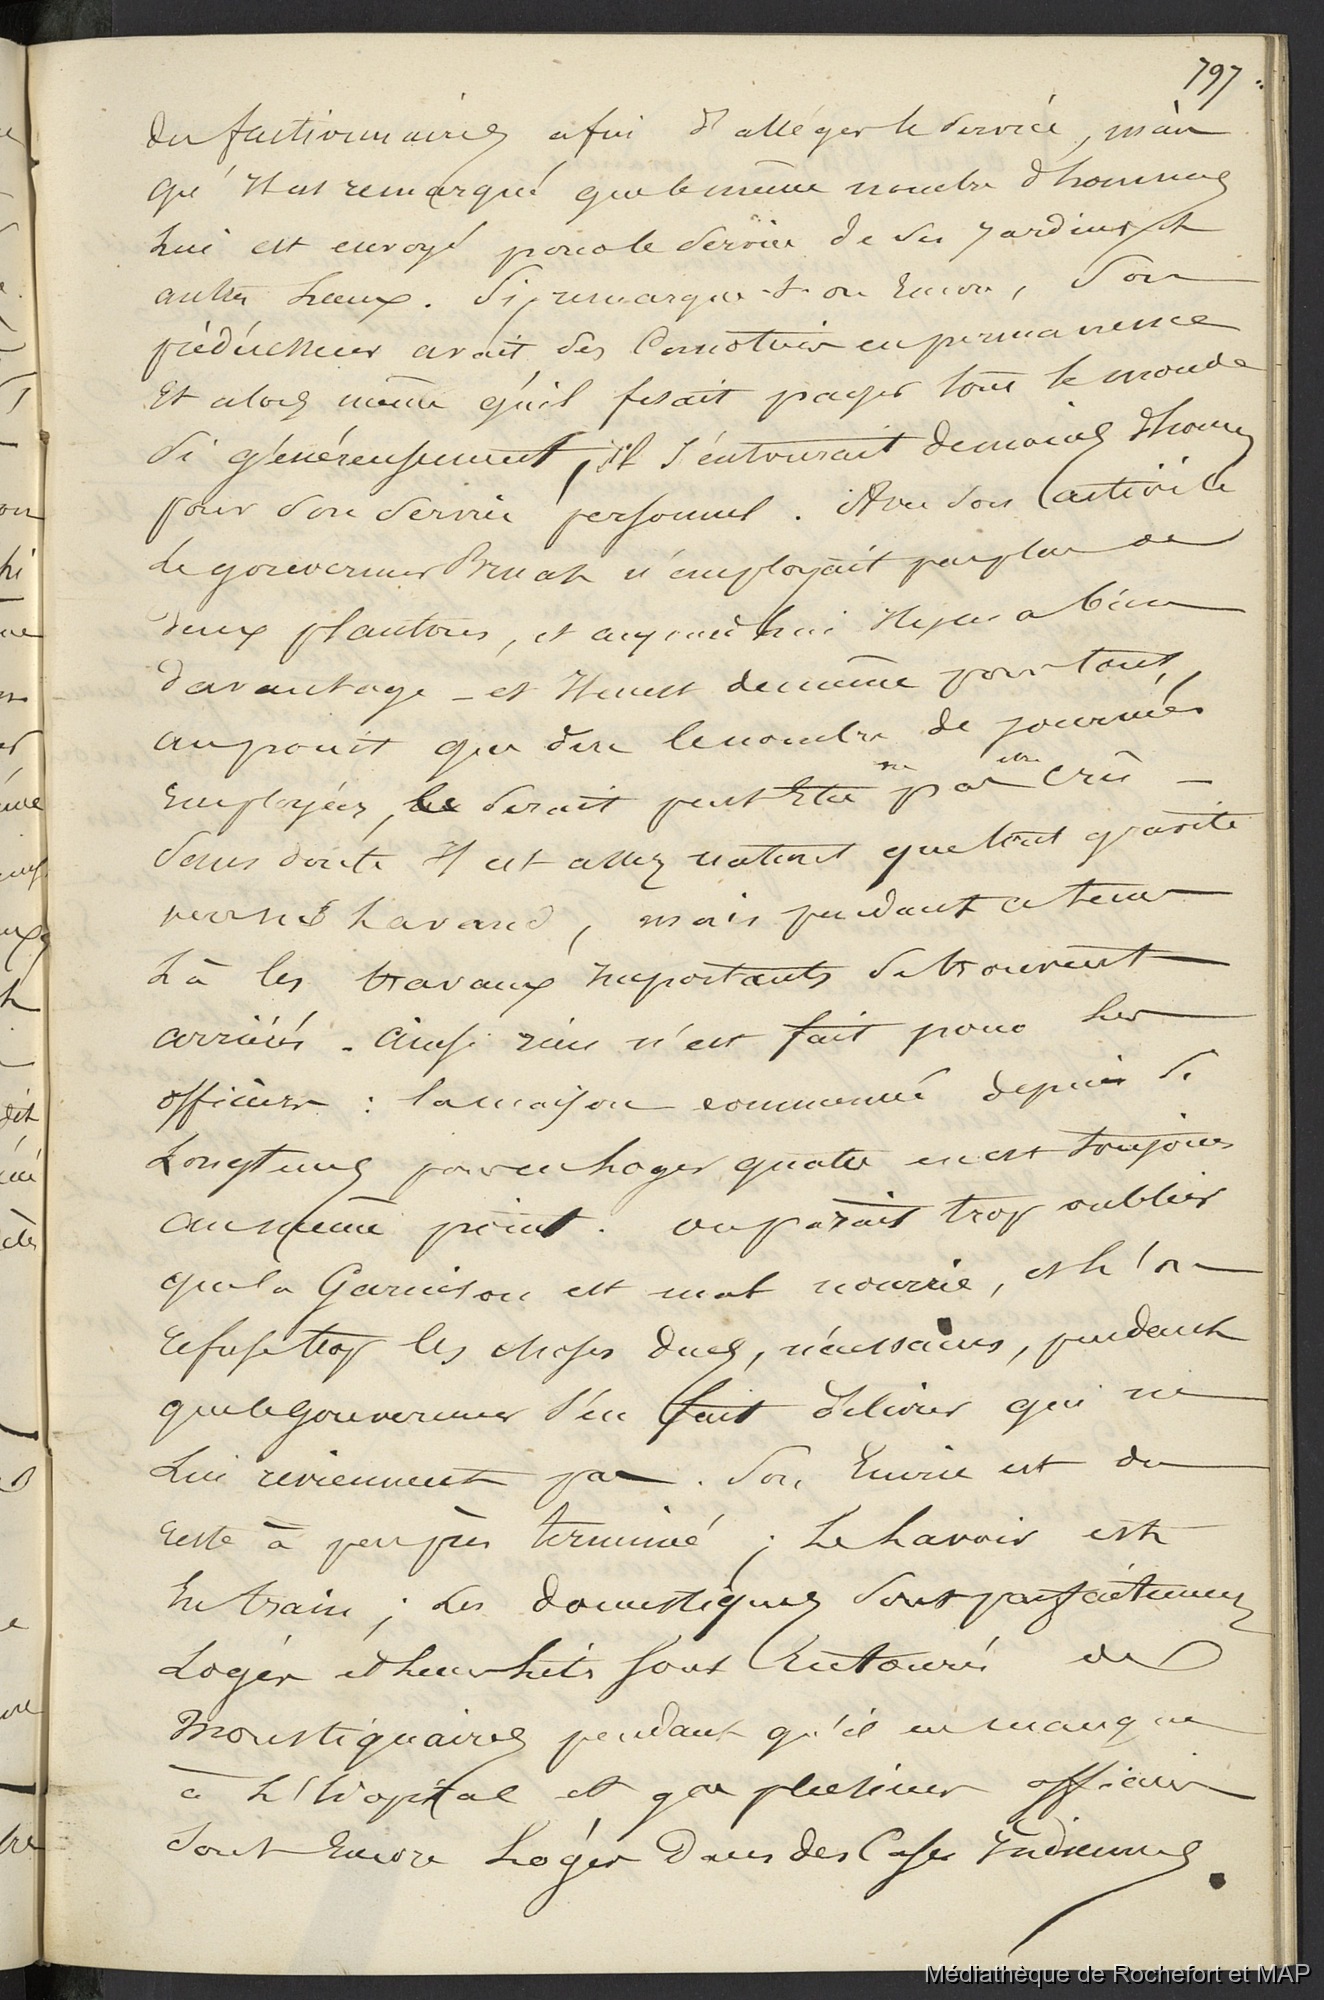 797
des factionnaires afin d'alléger le service, mais
qu'il est remarqué que le même nombre d'hommes
lui est envoyé pour le service de ses jardins et
autres lieux. Si, remarque-t-on Encore, Son
prédécesseur avait des Canotiers en permanence
Et alors même qu'il fesait payer tout le monde
Si généreusement, il S'entourait de moins d'homes
pour Son Service personnel. Avec Son activité
Le gouverneur Bruat n'employait pas plus de
deux plantons, et aujourd'hui Il y en a bien
davantage _ et Il en est de même pour tout,
au point que dire le nombre de journées
Employées, ce Serait peut Etre ne pas être crû _
Sans doute Il est assez naturel que tout gravite
vers
Là les travaux Importants Se trouvent
arriérés. Ainsi rien n'est fait pour les
officiers : la maison commencée depuis Si
Longtems pour en Loger quatre en est toujours
au même point. on parait trop oublier
que la Garnison est mal nourrie, et L'on
refuse trop les choses dues, nécessaires, pendant
que le Gouverneur S'en fait délivrer qui ne
Lui reviennent pas. Son Ecurie est du
reste à peu près terminé ; Le Lavoir est
En train ; Les domestiques Sont parfaitement
Logés et leurs lits Sont Entourés de
Moustiquaires pendant qu'il en manque
à L'hopital et que plusieurs officiers
Sont Encore Logés Dans des Cases Indiennes.
Médiathèque de Rochefort et MAP